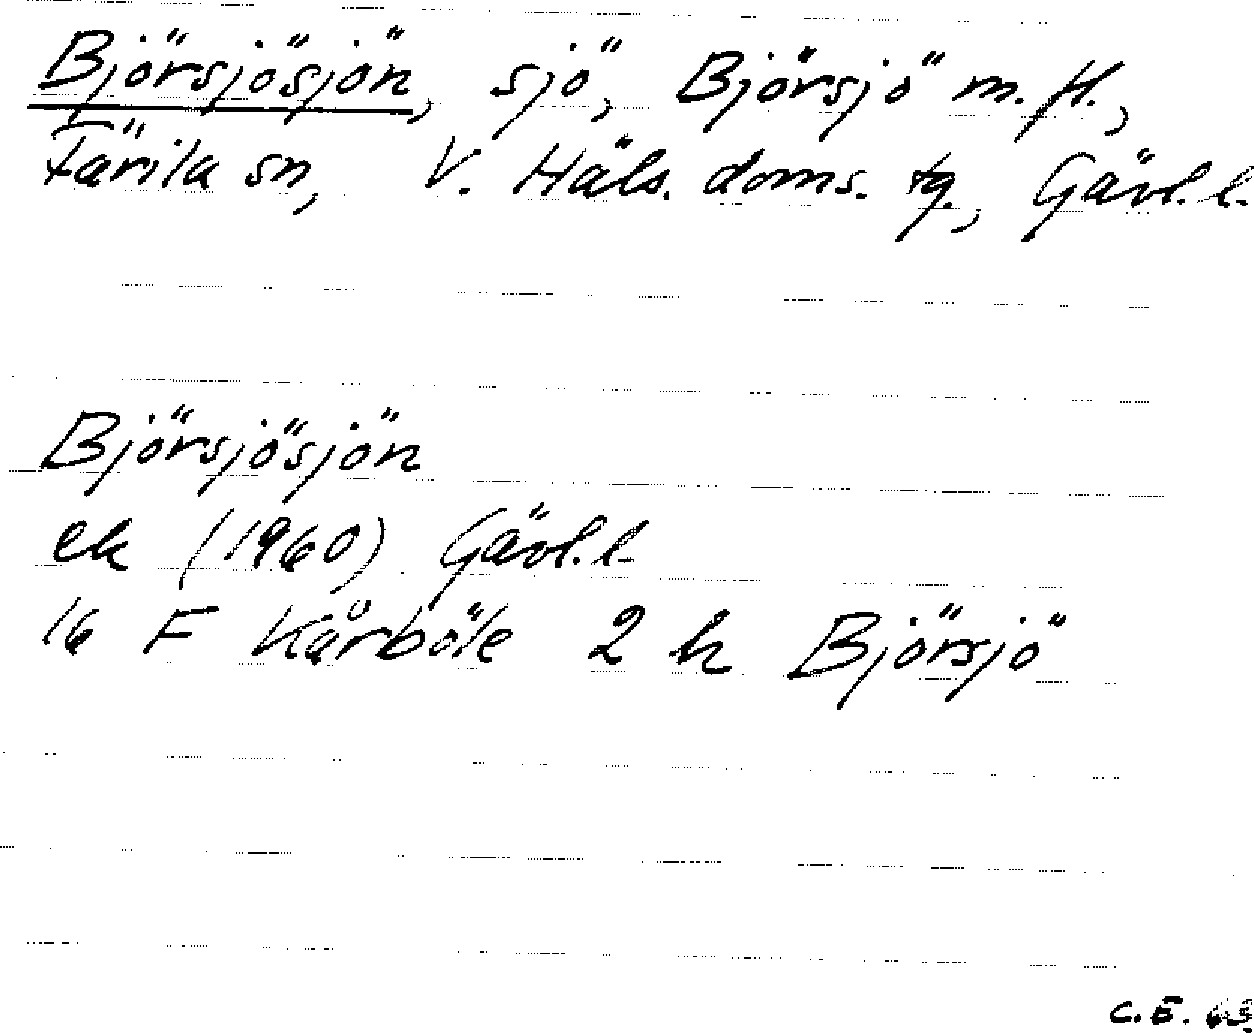 Björsjösjön, sjö, Björsjö m.fl.,
Färila sn, V. Häls. doms. tg., Gävl.l.
Björsjösjön
ek (1960) Gävl.l.
16 F Kårböle 2 h Björsjö
C.E. 63